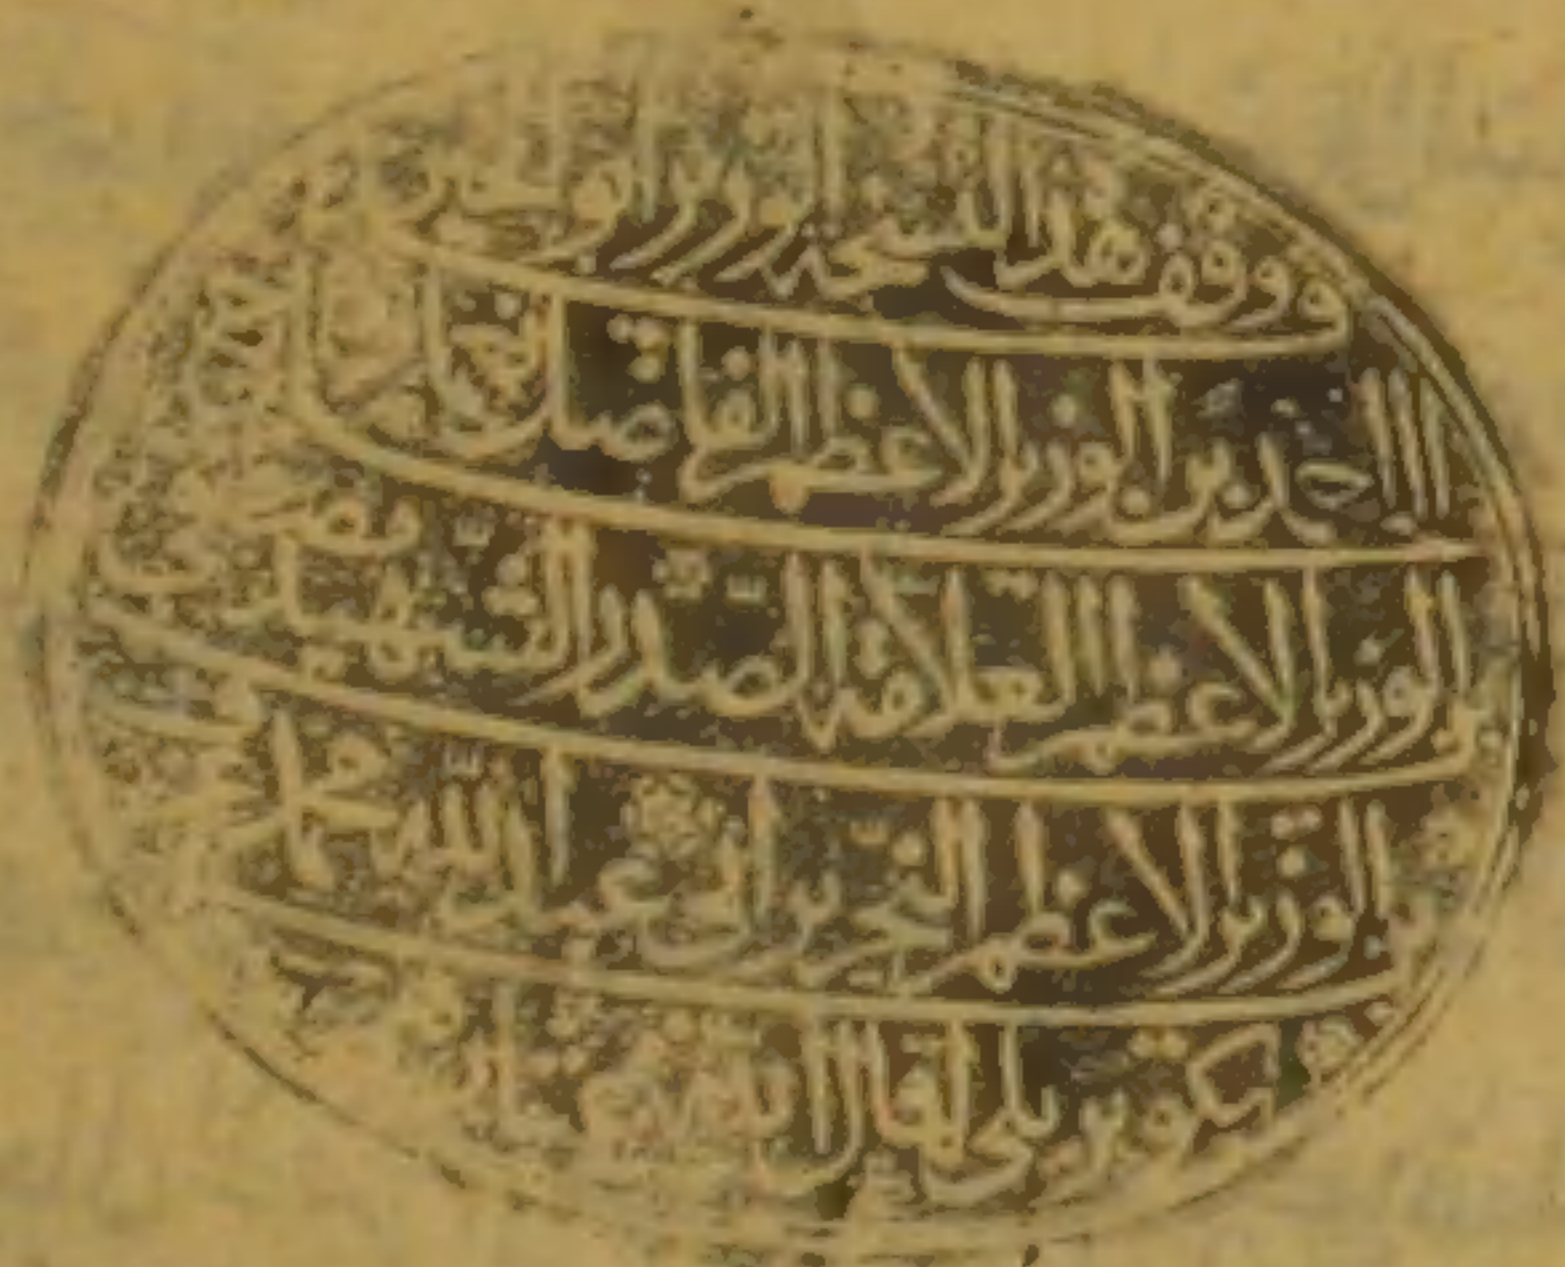 ووقف هذا النسخة الوزير ابو الخير
احمد بن الوزير الاعظم الفاضل نعمان
بن الوزير الاعظم العلامة الصدر الشهيد مصطفى
بن الوزير الاعظم النحرير ابي عبد الله محمد
كوبريلى اقال الله عثارهم